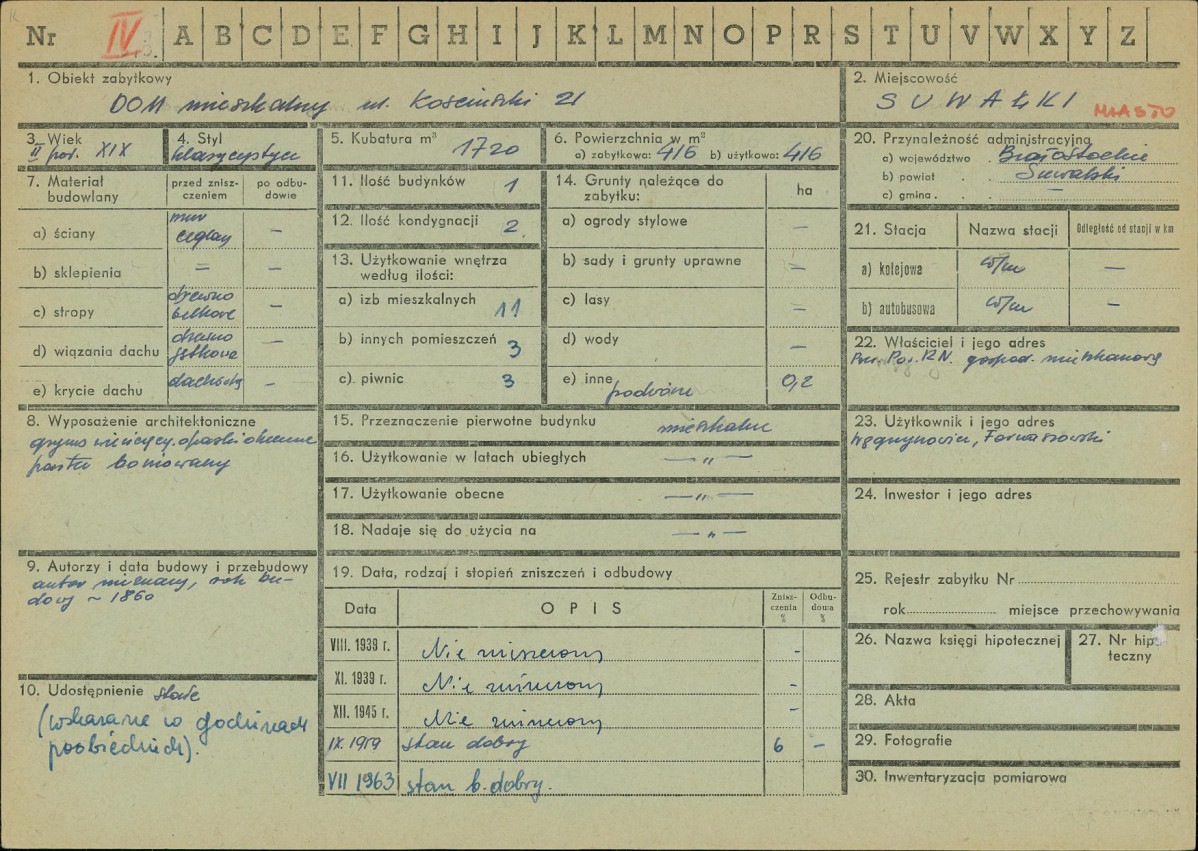 Nr IV A B C D E F G H I J K L M N O P R S T U V W X Y Z
1. Obiekt zabytkowy
DOM mieszkalny ul. Kościuszki 21
2. Miejscowość
SUWAŁKI MIASTO
3. Wiek
II poł. XIX
4. Styl
klasycystycz
5. Kubatura m³
1720
6. Powierzchnia w m²
a) zabytkowa: 416 b) użytkowa: 416
7. Materiał budowlany
przed zniszczeniem
po odbudowie
a) ściany mur ceglany –
b) sklepienia = –
c) stropy drewno belkowe –
d) wiązania dachu drewno –
e) krycie dachu dachówka –
8. Wyposażenie architektoniczne
gzyms wieńczący, opaski okienne
parter boniowany
9. Autorzy i data budowy i przebudowy
autor nieznany, rok bu-
dowy ~ 1860
10. Udostępnienie stałe
(wskazane w godzinach
poobiednich).
11. Ilość budynków 1
12. Ilość kondygnacji 2
13. Użytkowanie wnętrza
według ilości:
a) izb mieszkalnych 11
b) innych pomieszczeń 3
c) piwnic 3
14. Grunty należące do
zabytku:
ha
a) ogrody stylowe –
b) sady i grunty uprawne –
c) lasy –
d) wody –
e) inne podwórze 0,2
15. Przeznaczenie pierwotne budynku mieszkalne
16. Użytkowanie w latach ubiegłych — „ —
17. Użytkowanie obecne — „ —
18. Nadaje się do użycia na — „ —
19. Data, rodzaj i stopień zniszczeń i odbudowy
Data OPIS Zniszczenia % Odbudowa %
VIII. 1939 r. Nie zniszczony –
XI. 1939 r. Nie zniszczony –
XII. 1945 r. Nie zniszczony –
IX. 1959 stan dobry 6 –
VII 1963 stan b. dobry.
20. Przynależność administracyjna
a) województwo . Białostockie
b) powiat . Suwalski
c) gmina . . –
21. Stacja
Nazwa stacji
Odległość od stacji w km
a) kolejowa w/m –
b) autobusowa w/m –
22. Właściciel i jego adres
gospod. mieszkaniowa
23. Użytkownik i jego adres
24. Inwestor i jego adres
25. Rejestr zabytku Nr
rok miejsce przechowywania
26. Nazwa księgi hipotecznej
27. Nr hipoteczny
28. Akta
29. Fotografie
30. Inwentaryzacja pomiarowa